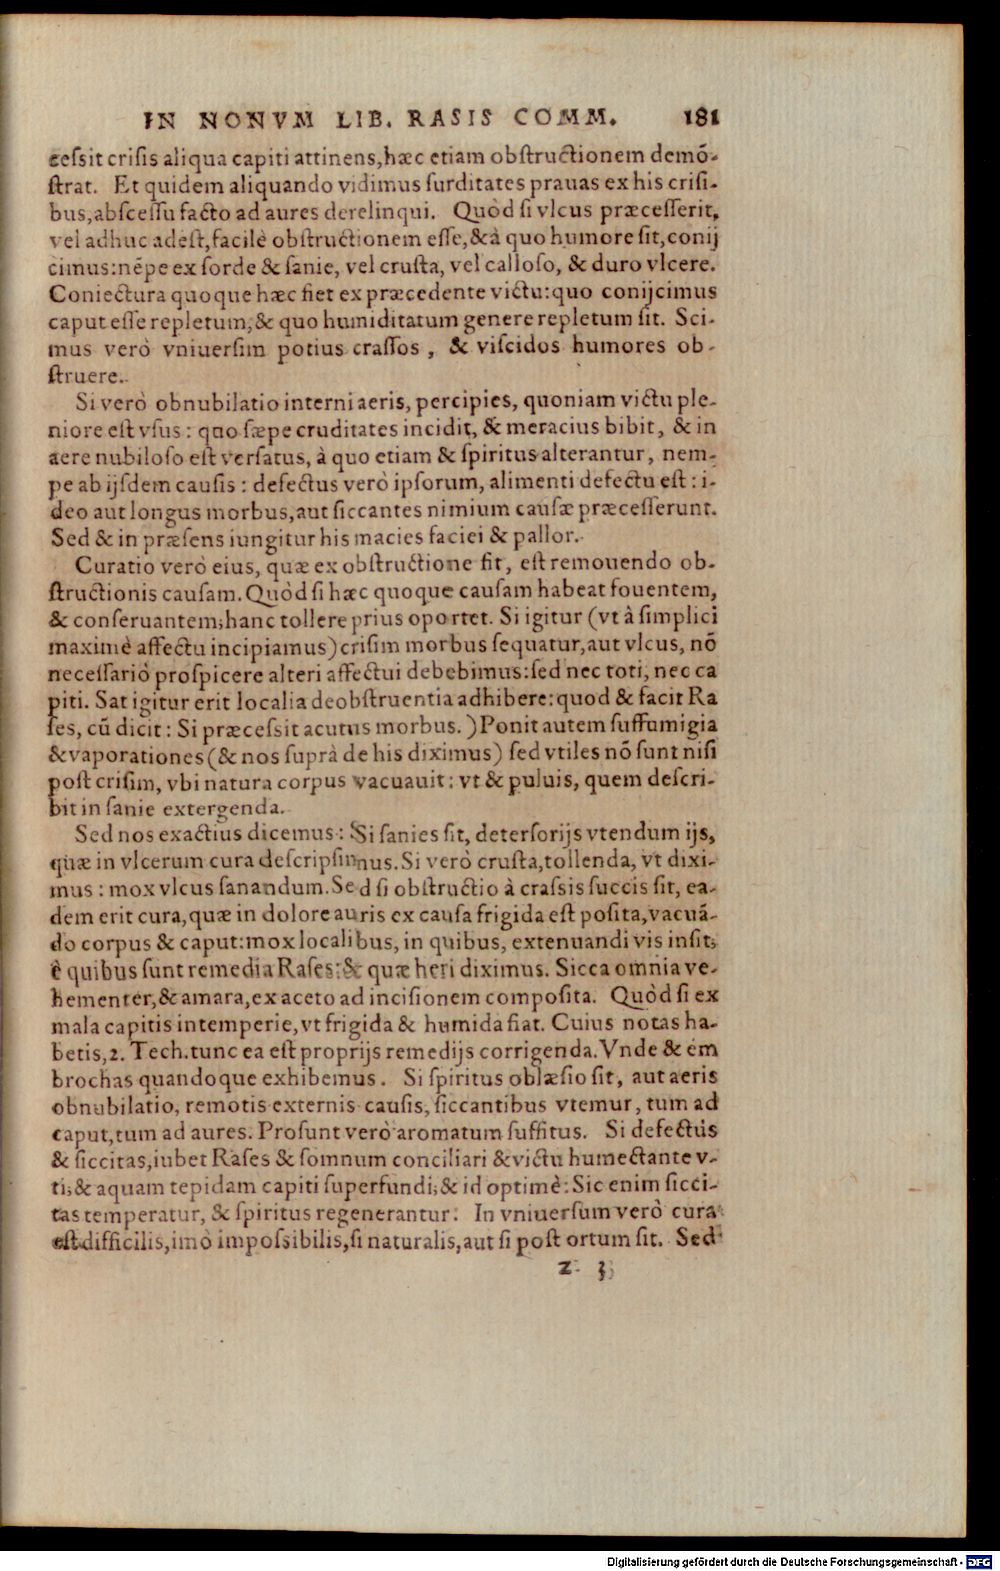 IN NONVM LIB. RASIS COMM. 181
cessit crisis aliqua capiti attinens, hæc etiam obstructionem demõ-
strat. Et quidem aliquando vidimus surditates prauas ex his crisi-
bus, abscessu facto ad aures derelinqui. Quòd si vlcus præcesserit,
vel adhuc adest, facilè obstructionem esse, & à quo humore sit, conij
cimus: nẽpe ex sorde & sanie, vel crusta, vel calloso, & duro vlcere.
Coniectura quoque hæc fiet ex præcedente victu: quo conijcimus
caput esse repletum, & quo humiditatum genere repletum sit. Sci-
mus verò vniuersim potius crassos, & viscidos humores ob-
struere.
Si verò obnubilatio interni aeris, percipies, quoniam victu ple-
niore est vsus: quo sæpe cruditates incidit, & meracius bibit, & in
aere nubiloso est versatus, à quo etiam & spiritus alterantur, nem-
pe ab ijsdem causis: defectus verò ipsorum, alimenti defectu est: i-
deo aut longus morbus, aut siccantes nimium causæ præcesserunt.
Sed & in præsens iungitur his macies faciei & pallor.
Curatio verò eius, quæ ex obstructione fit, est remouendo ob-
structionis causam. Quòd si hæc quoque causam habeat fouentem,
& conseruantem; hanc tollere prius oportet. Si igitur (vt à simplici
maximè affectu incipiamus) crisim morbus sequatur, aut vlcus, nõ
necessariò prospicere alteri affectui debebimus: sed nec toti, nec ca
piti. Sat igitur erit localia deobstruentia adhibere: quod & facit Ra
ses, cũ dicit: Si præcessit acutus morbus.) Ponit autem suffumigia
& vaporationes (& nos suprà de his diximus) sed vtiles nõ sunt nisi
post crisim, vbi natura corpus vacuauit: vt & puluis, quem descri-
bit in sanie extergenda.
Sed nos exactius dicemus: Si sanies sit, detersorijs vtendum ijs,
quæ in vlcerum cura descripsimus. Si verò crusta, tollenda, vt dixi-
mus: mox vlcus sanandum. Sed si obstructio à crassis succis sit, ea-
dem erit cura, quæ in dolore auris ex causa frigida est posita, vacuã-
do corpus & caput: mox localibus, in quibus, extenuandi vis insit,
è quibus sunt remedia Rases: & quæ heri diximus. Sicca omnia ve-
hementer, & amara, ex aceto ad incisionem composita. Quòd si ex
mala capitis intemperie, vt frigida & humida fiat. Cuius notas ha-
betis, 2. Tech. tunc ea est proprijs remedijs corrigenda. Vnde & em
brochas quandoque exhibemus. Si spiritus oblæsio sit, aut aeris
obnubilatio, remotis externis causis, siccantibus vtemur, tum ad
caput, tum ad aures. Prosunt verò aromatum suffitus. Si defectus
& siccitas, iubet Rases & somnum conciliari & victu humectante v-
ti; & aquam tepidam capiti superfundi; & id optimè: Sic enim sicci-
tas temperatur, & spiritus regenerantur. In vniuersum verò cura
est difficilis, imò impossibilis, si naturalis, aut si post ortum sit. Sed
z 3
Digitalisierung gefördert durch die Deutsche Forschungsgemeinschaft - DFG